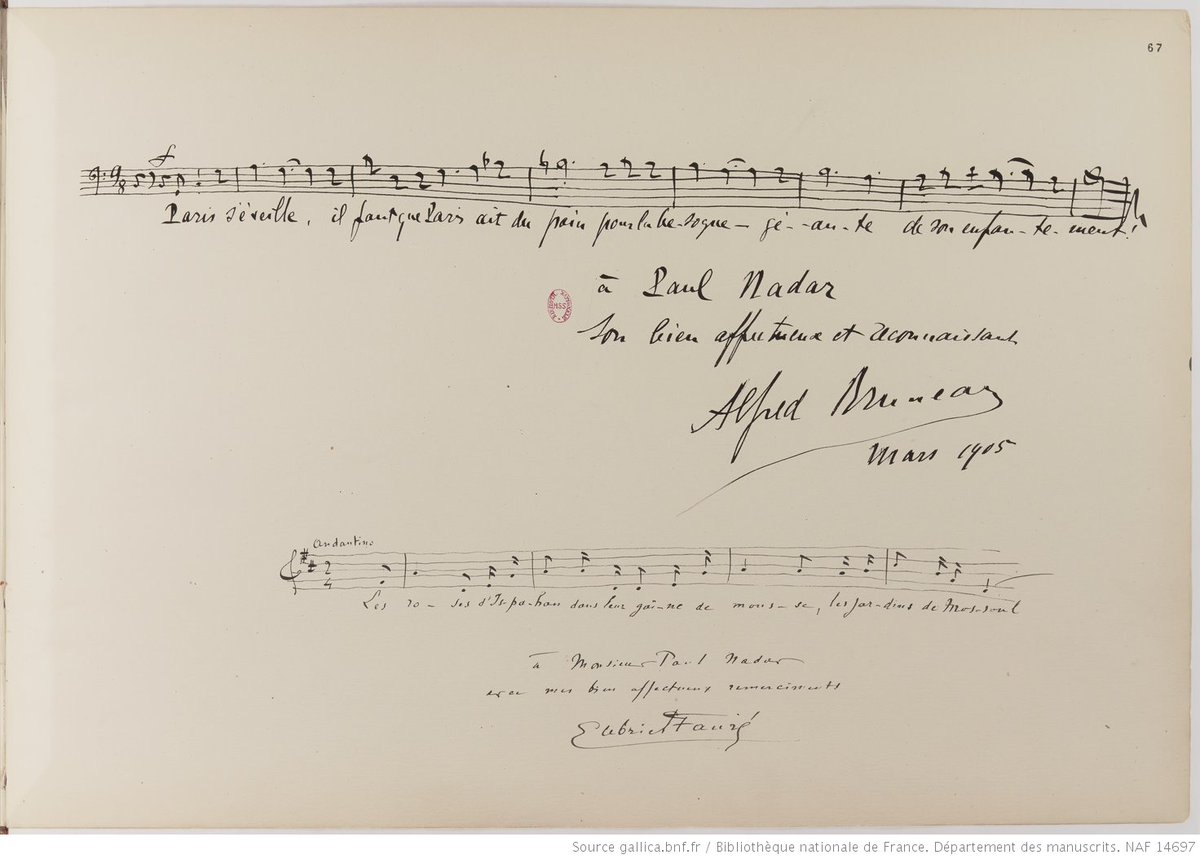 67
f
9/8
Paris s'éveille, il faut que Paris ait du pain pour la be-sogne - gé--an-te de son enfan-te-ment!
à Paul Nadar
Son bien affectueux et reconnaissant
Alfred Bruneau
Mars 1905
MSS
andantino
2/4
Les ro-ses d'Is-pa-han dans leur gaî-ne de mous-se, les jar-dins de Mos-soul
à Monsieur Paul Nadar
avec mes bien affectueux remerciments
Gabriel Fauré
Source gallica.bnf.fr / Bibliothèque nationale de France. Département des manuscrits. NAF 14697